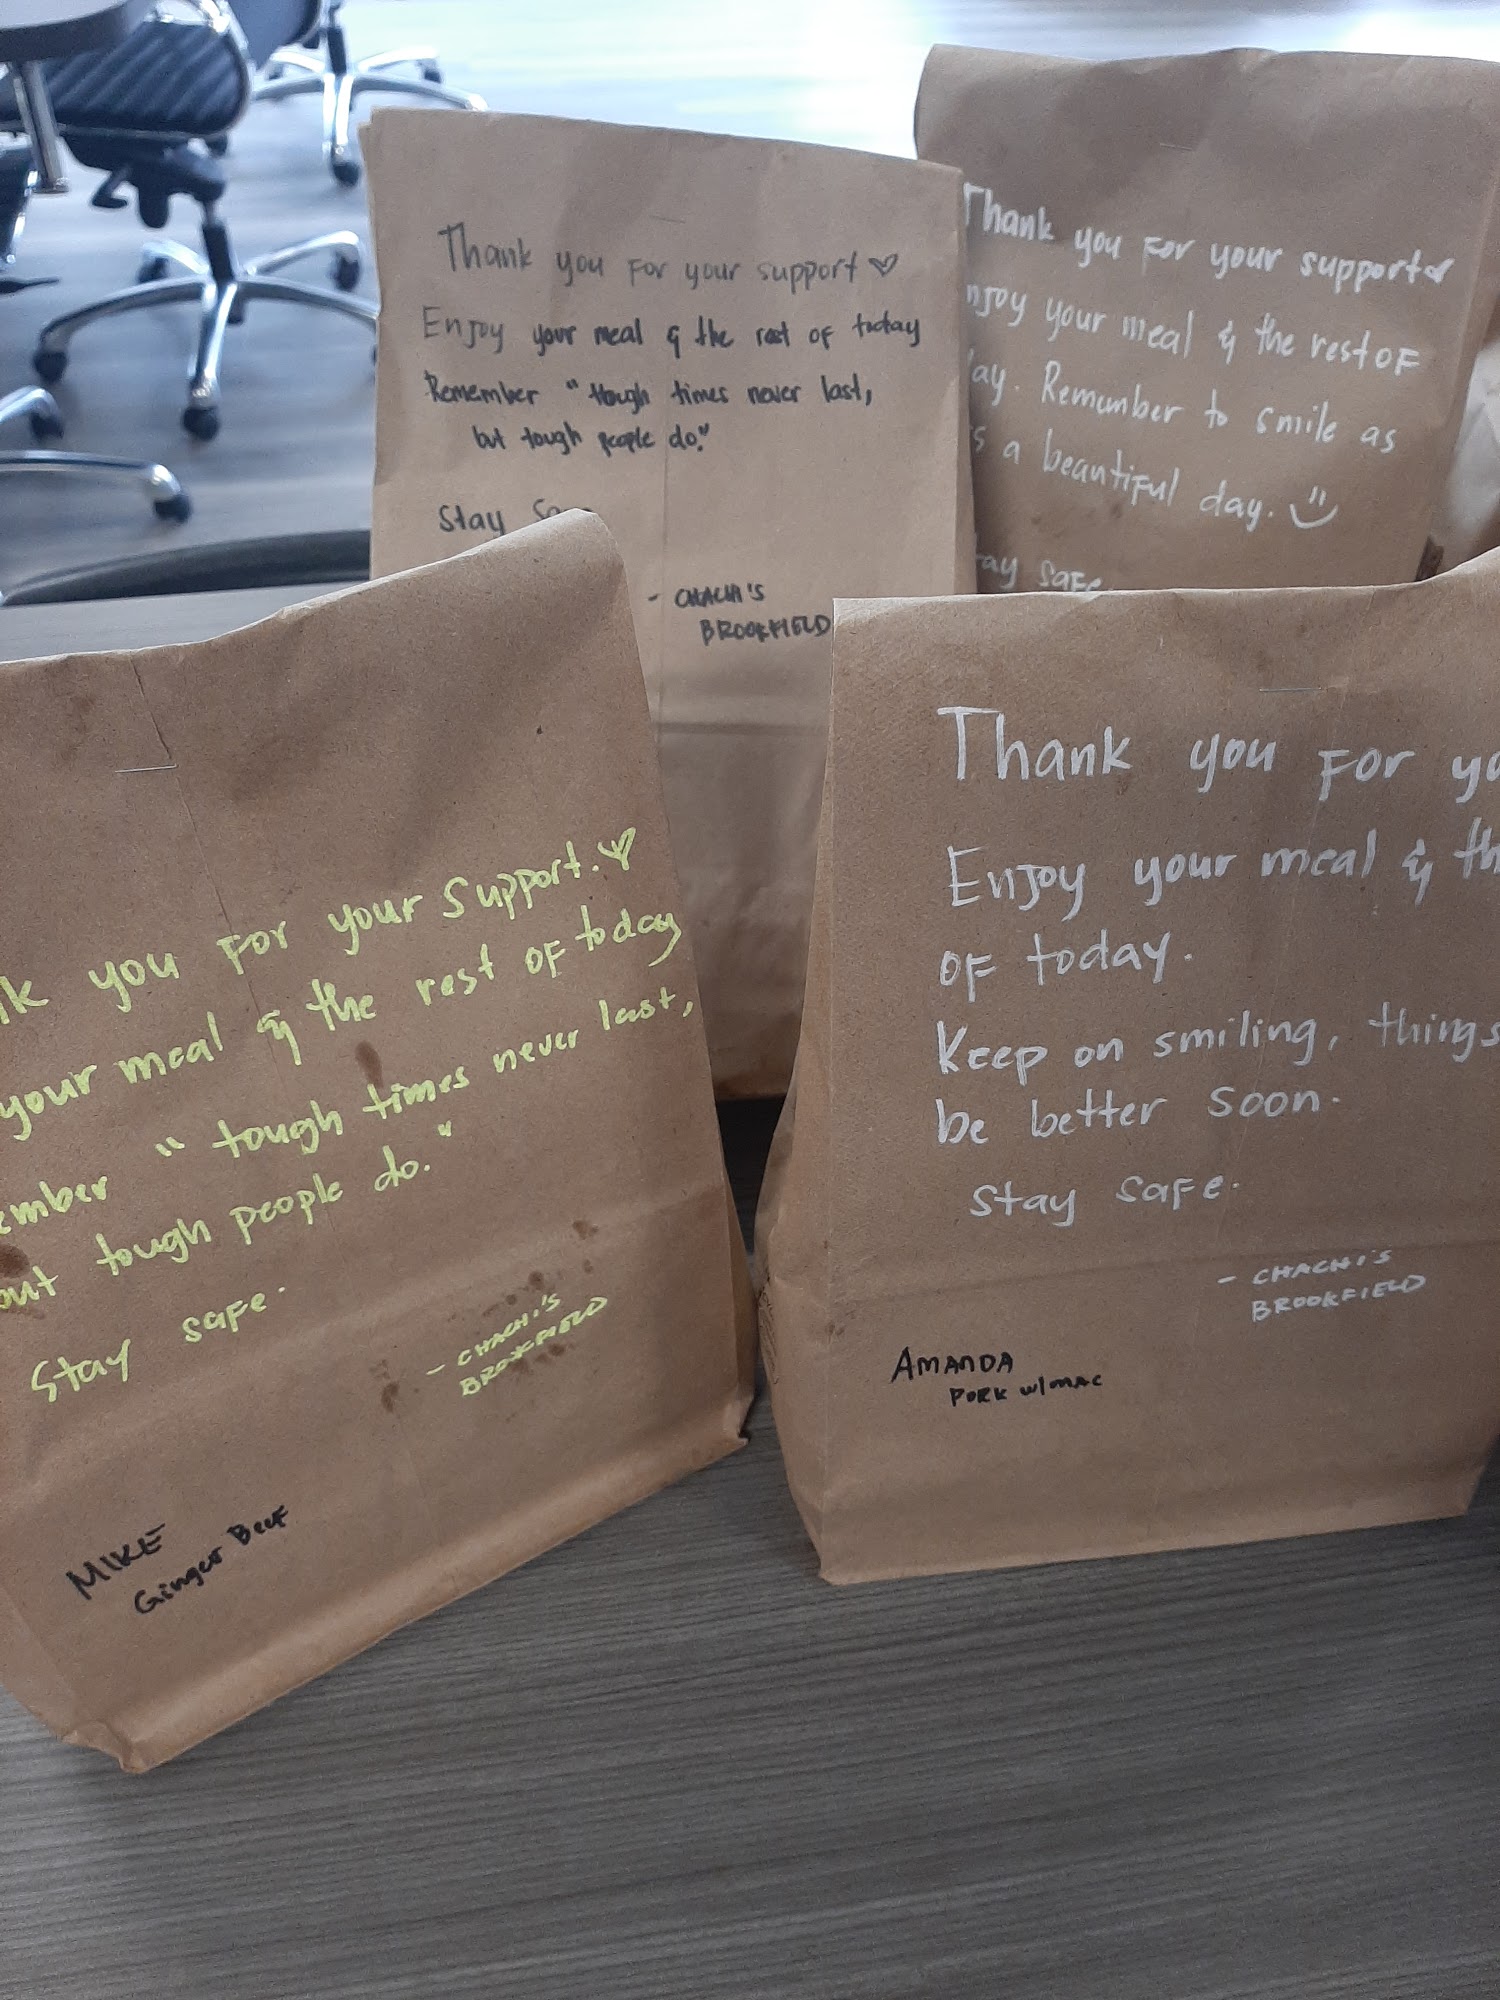 Thank you For your support
Enjoy your meal & the rest of today
Remember "tough times never last,
but tough people do."
Stay
- CHACHI'S
BROOKFIELD
Thank you For your support
your meal & the rest OF
Remember to smile as
a beautiful day.
safe
you For your Support.
your meal & the rest OF today
"tough times never last,
tough people do."
Stay safe.
- CHACHI'S
BROOKFIELD
MIKE
Ginger Beef
Thank you For
Enjoy your meal &
OF today.
Keep on smiling, things
be better soon.
Stay safe.
- CHACHI'S
BROOKFIELD
AMANDA
PORK W/MAC